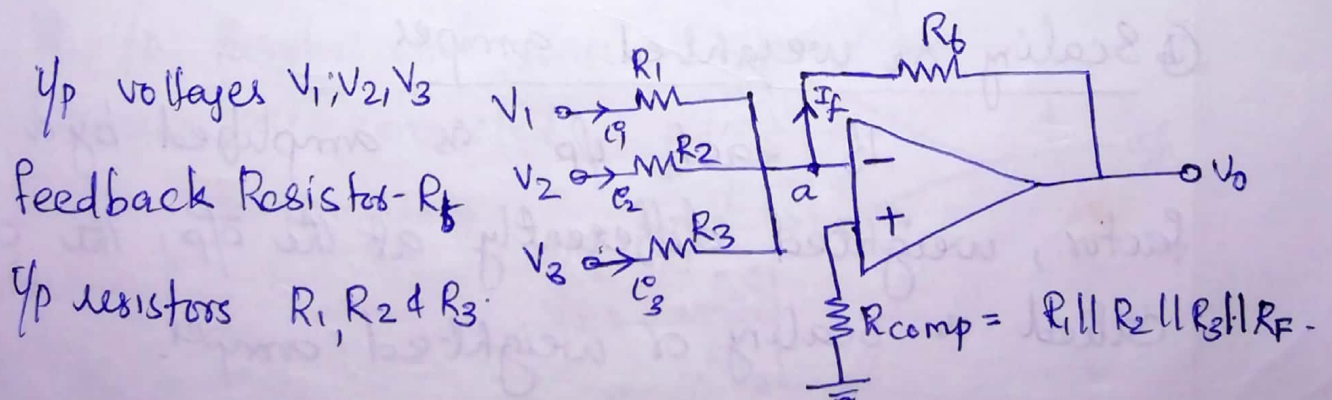 i/p voltages V1, V2, V3
feedback Resistor - Rf
i/p resistors R1, R2 & R3.
V1
i1
R1
V2
i2
R2
V3
i3
R3
a
If
Rf
−
+
Vo
Rcomp = R1 || R2 || R3 || RF.